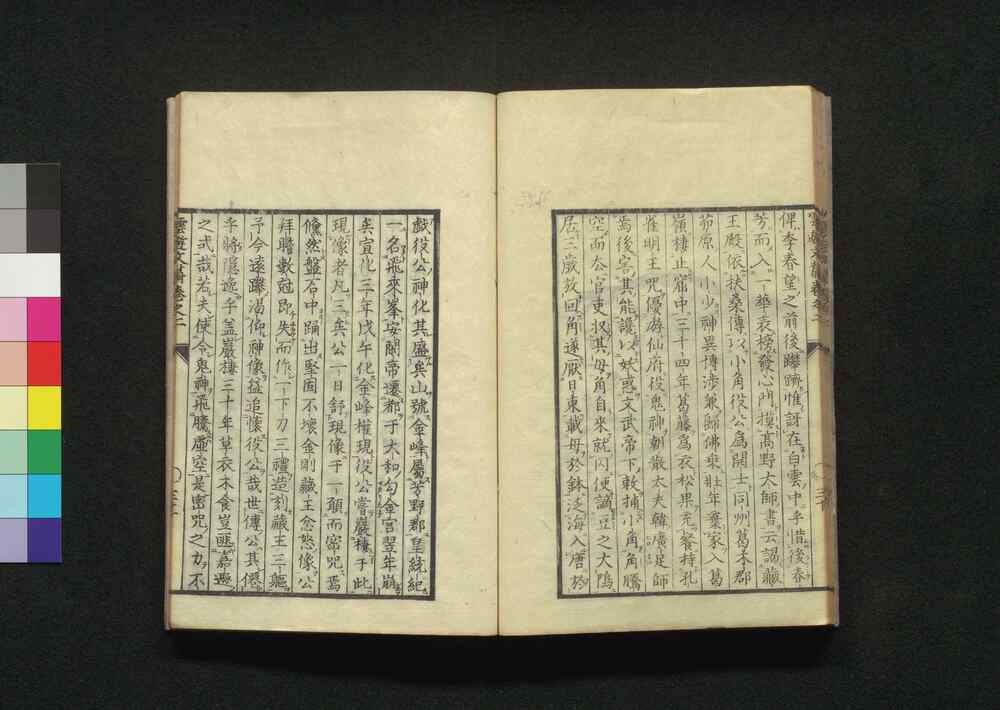 俾季春望之前後躑躅惟訝在白雲中乎惜後春
芳而入一華表榜發心門摸髙野大師書云謁藏
王殿依扶桑傳以小角役公爲開士同州葛木郡
茆原人小少神異博渉兼歸佛乘壯年棄家入葛
嶺棲止窟中三十四年葛藤爲衣松果充餐持孔
雀明王咒優游仙府役鬼神朝散大夫韓廣足師
焉後害其能讒以妖惑文武帝下敕捕小角角騰
空而去官吏収其母角自来就囚便讁豆之大嶋
居三歲放回角遂厭日東載母於鉢泛海入唐於
戯役公神化其盛矣山號金峰屬芳野郡皇統紀
一名飛來峯安閑帝遷都于大和勾金宮翌年崩
矣宣化三年戊午化金峰權現役公嘗巖棲于此
現像者凡三矣公一日舒現像于一顛而密咒焉
儵然盤石中踊出堅固不壞金剛藏王忿怒像公
拜瞻數尅即失而作一下刀三禮造刻藏王三軀
予今遠躋渇仰神像益追懷役公哉世傳公其僊
乎將隱逸乎盖巖棲三十年草衣木食豈匪希遯
之弍哉若夫使令鬼神飛騰虚空是密咒之力不
雲遊文蔀卷之二